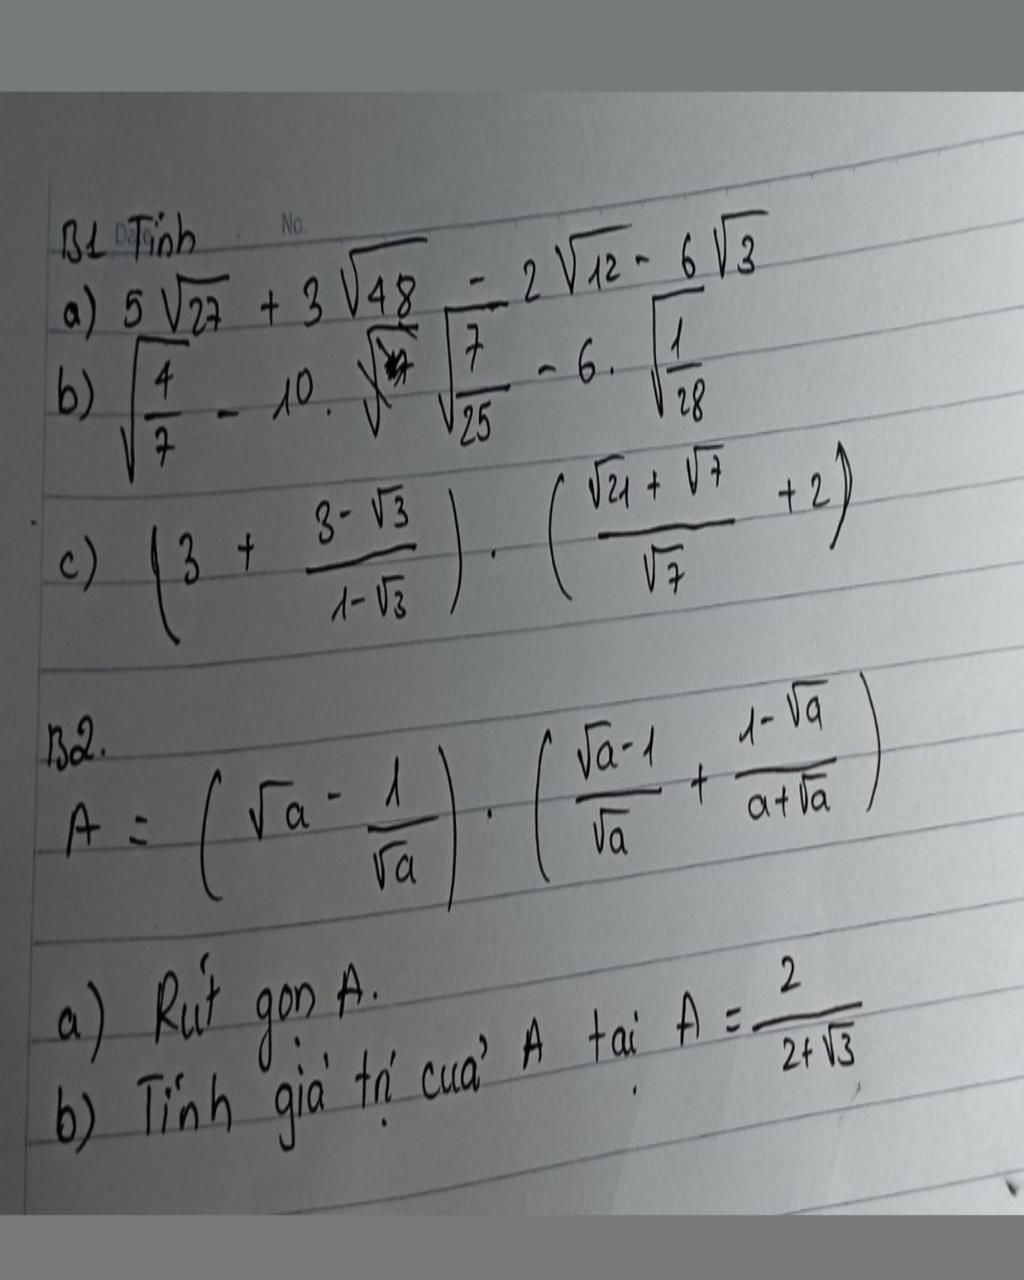 Date No.
B1 Tính
a) 5√27 + 3√48 - 2√12 - 6√3
b) √(4/7) - 10. √(7/25) - 6. √(1/28)
c) (3 + (3-√3)/(1-√3)) . ((√21 + √7)/√7 + 2)
B2.
A = (√a - 1/√a) . ((√a-1)/√a + (1-√a)/(a+√a))
a) Rút gọn A.
b) Tính giá trị của A tại A = 2/(2+√3)